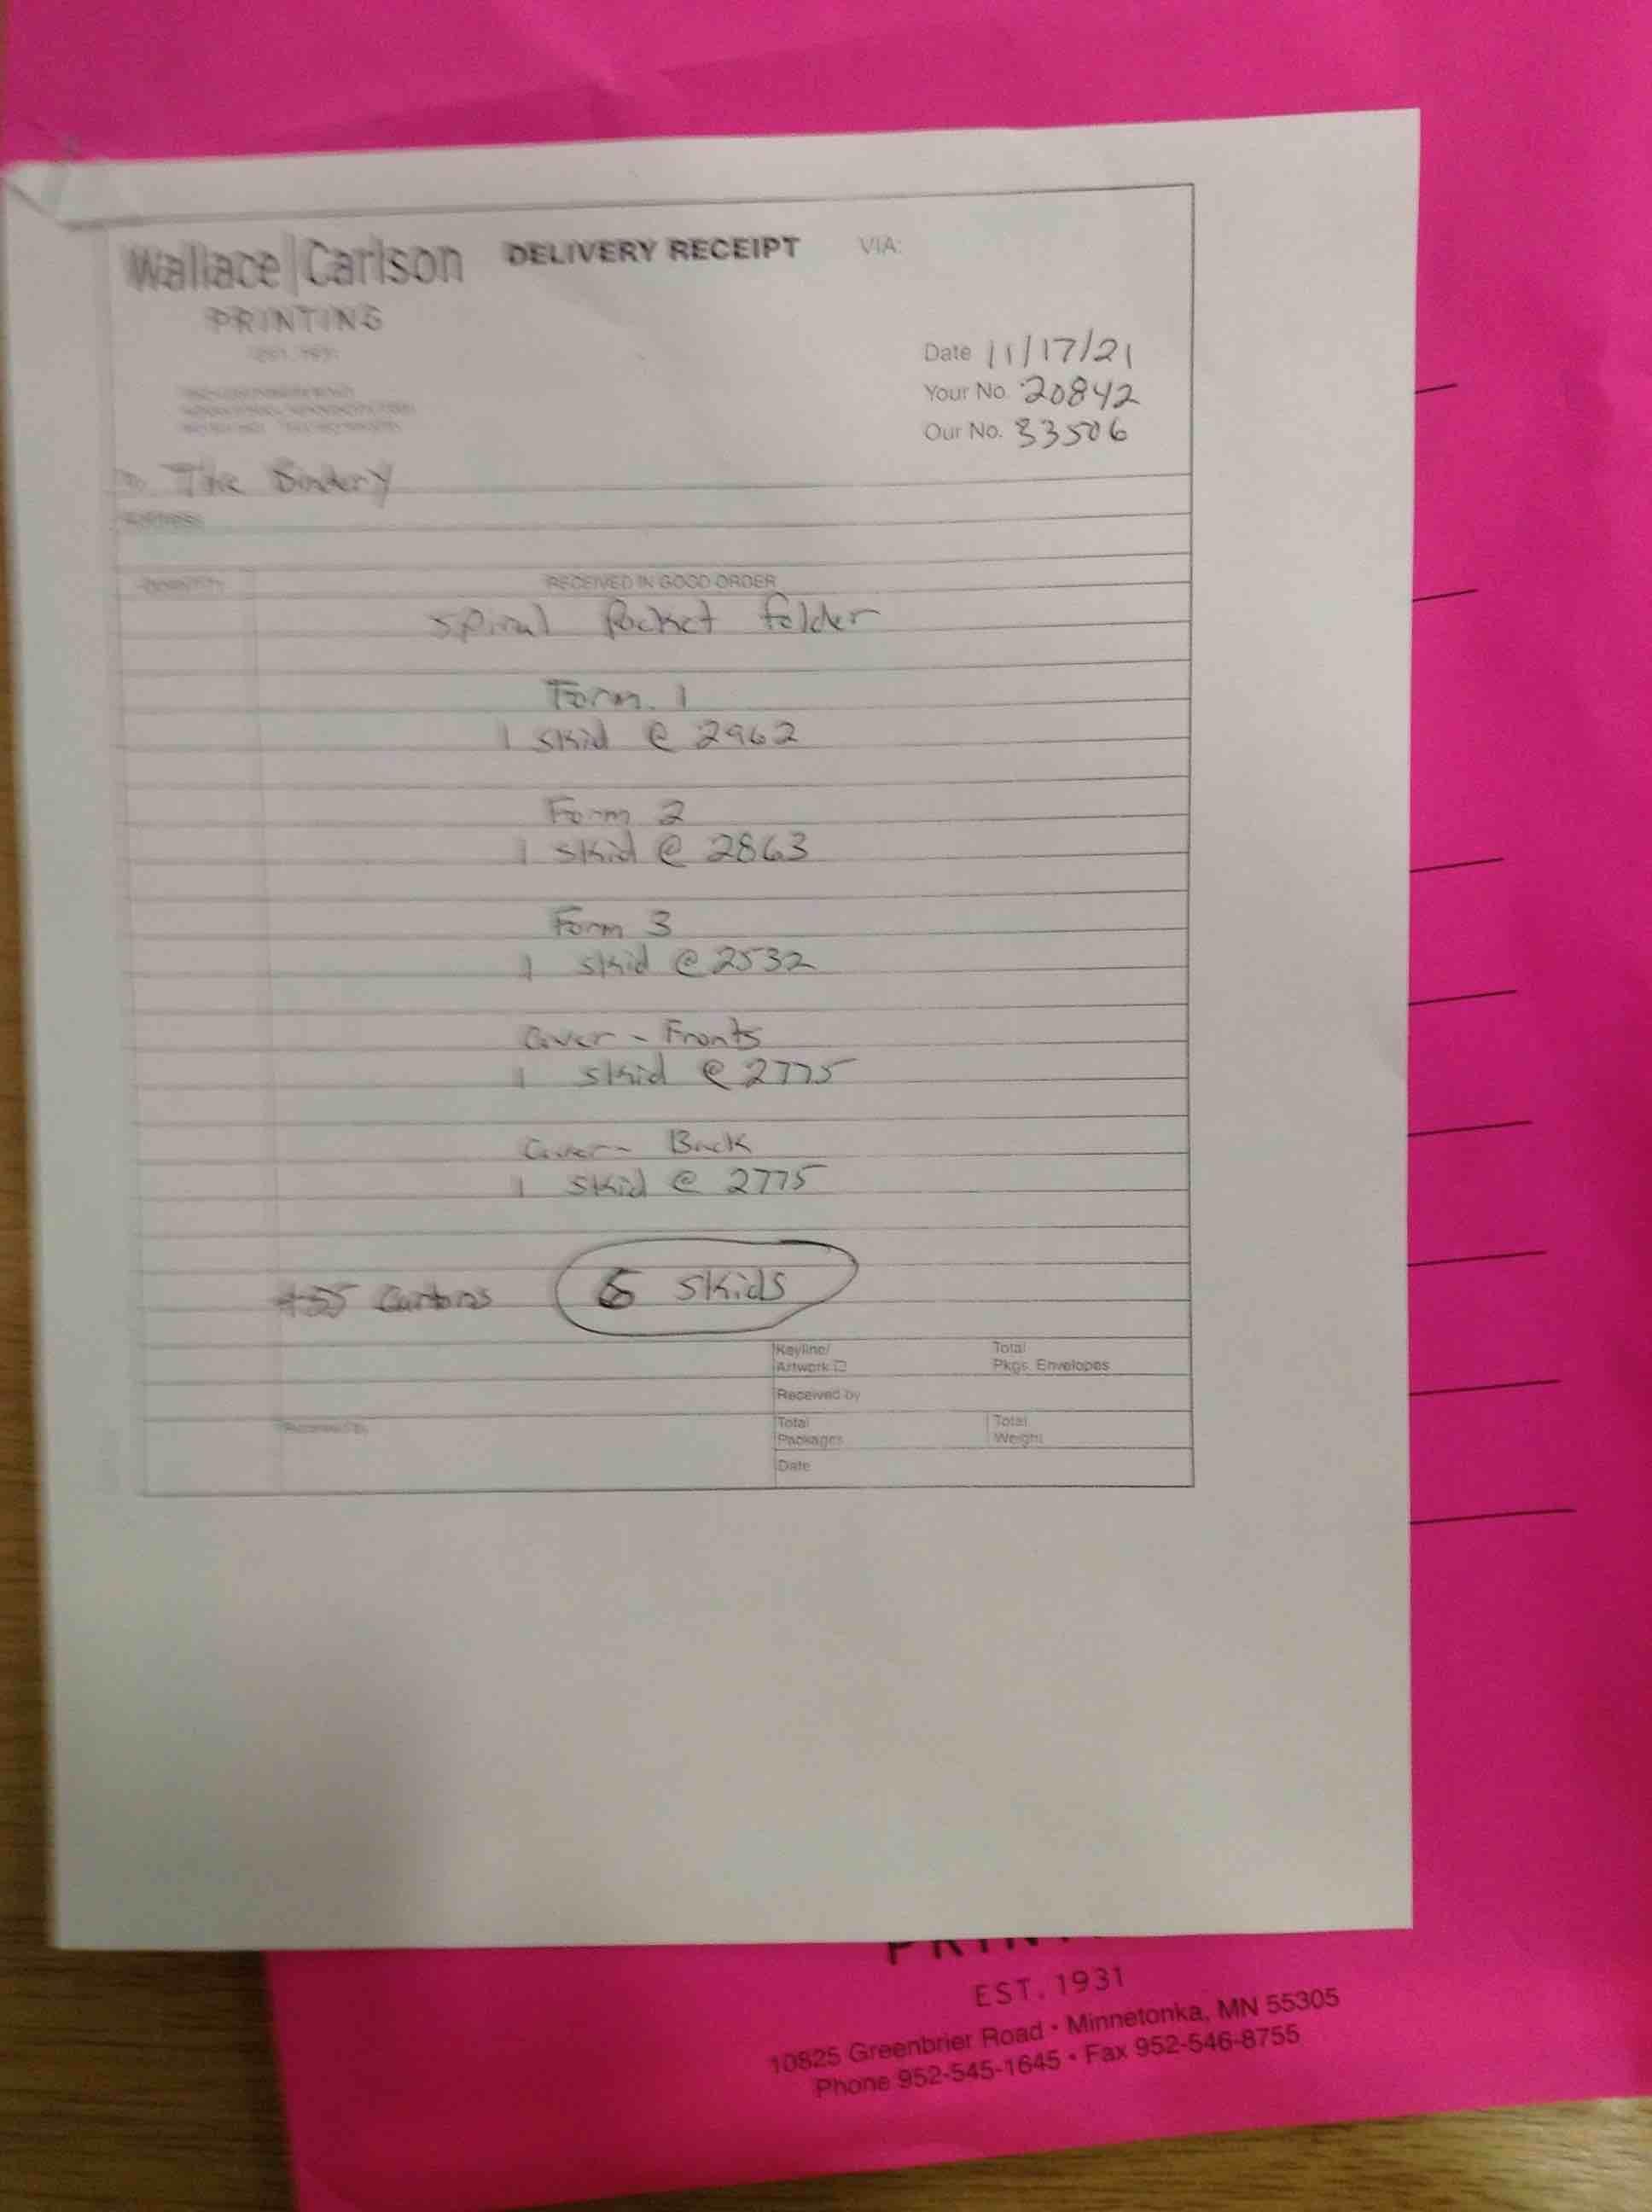 Wallace|Carlson
DELIVERY RECEIPT
VIA:
PRINTING
Date 11/17/21
Your No. 20842
Our No. 33506
To The Bindery
Address
Quantity
RECEIVED IN GOOD ORDER
Spiral Pocket folder
Form 1
1 skid @ 2962
Form 2
1 skid @ 2863
Form 3
1 skid @ 2532
Cover - Fronts
1 skid @ 2775
Cover - Back
1 skid @ 2775
Cartons
skids
Keyline/
Artwork
Total
Pkgs. Envelopes
Received by
Received by
Total
Packages
Total
Weight
Date
EST. 1931
10825 Greenbrier Road • Minnetonka, MN 55305
Phone 952-545-1645 • Fax 952-546-8755